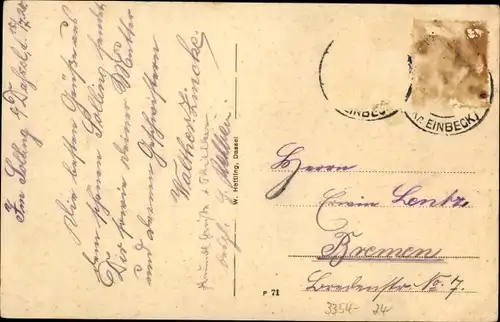 Im Solling b/ Dassel, d.
Die besten Grüße aus
dem schönen Solling sendet
Dir sowie deiner Mutter
und deinen Geschwistern
Walther
W. Hettling, Dassel
P 71
EINBECK
EINBECK)
Herrn
Erwin Lentz
Bremen
Bredenstr. No. 7.
3354- 24